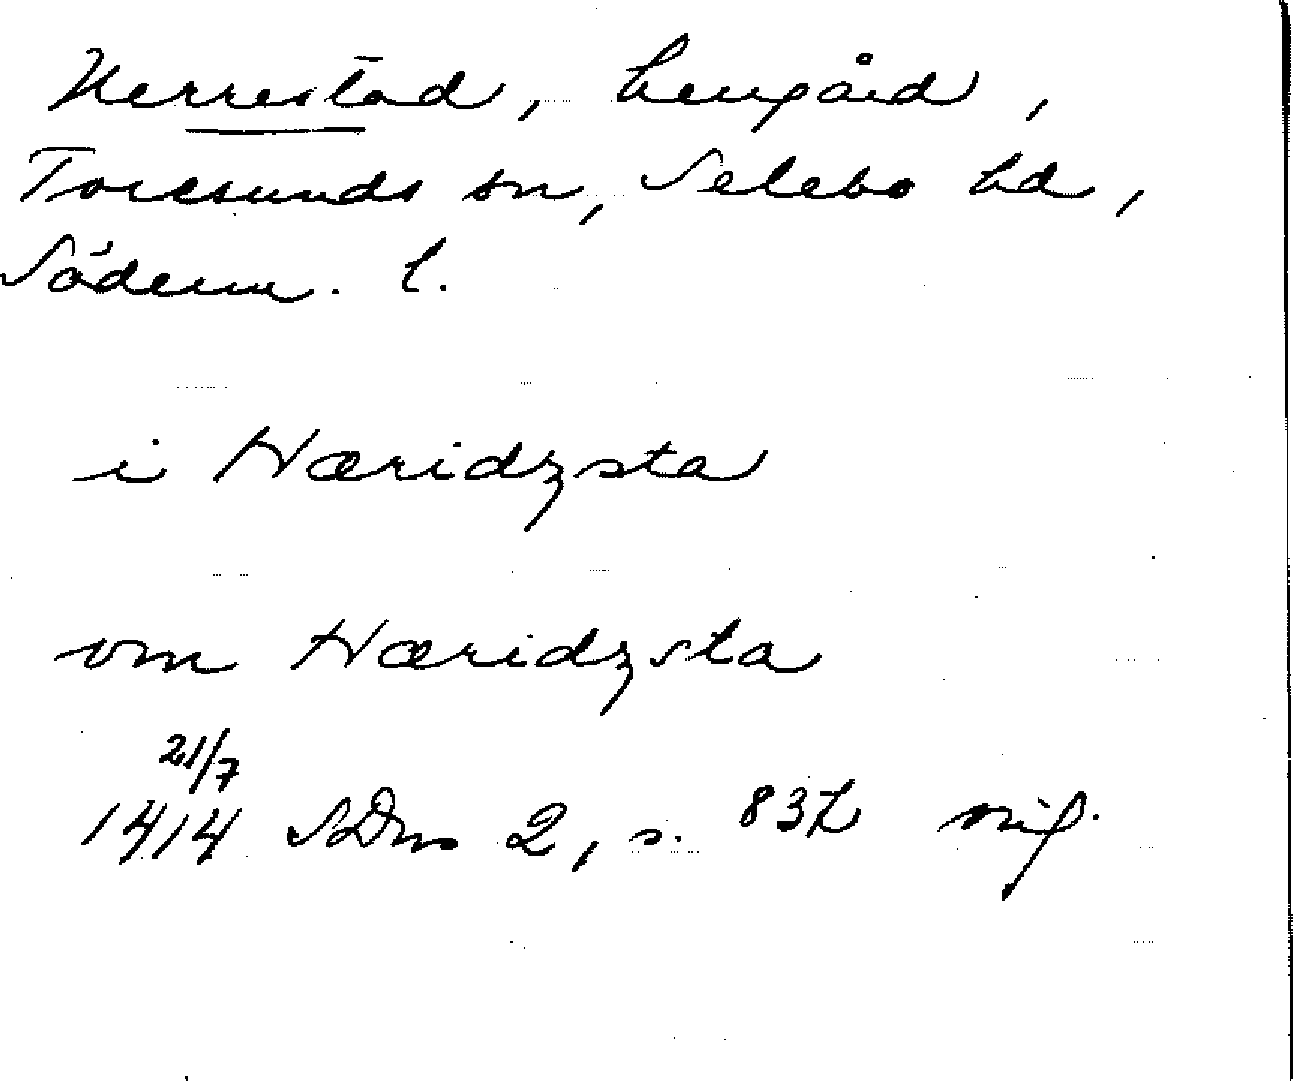 Herrestad, herrgård,
Toresunds sn, Selebo hd,
Söderm. l.
i Hæridzsta
om Hæridzsta
21/7
1414 SDns 2, s. 832 sig.